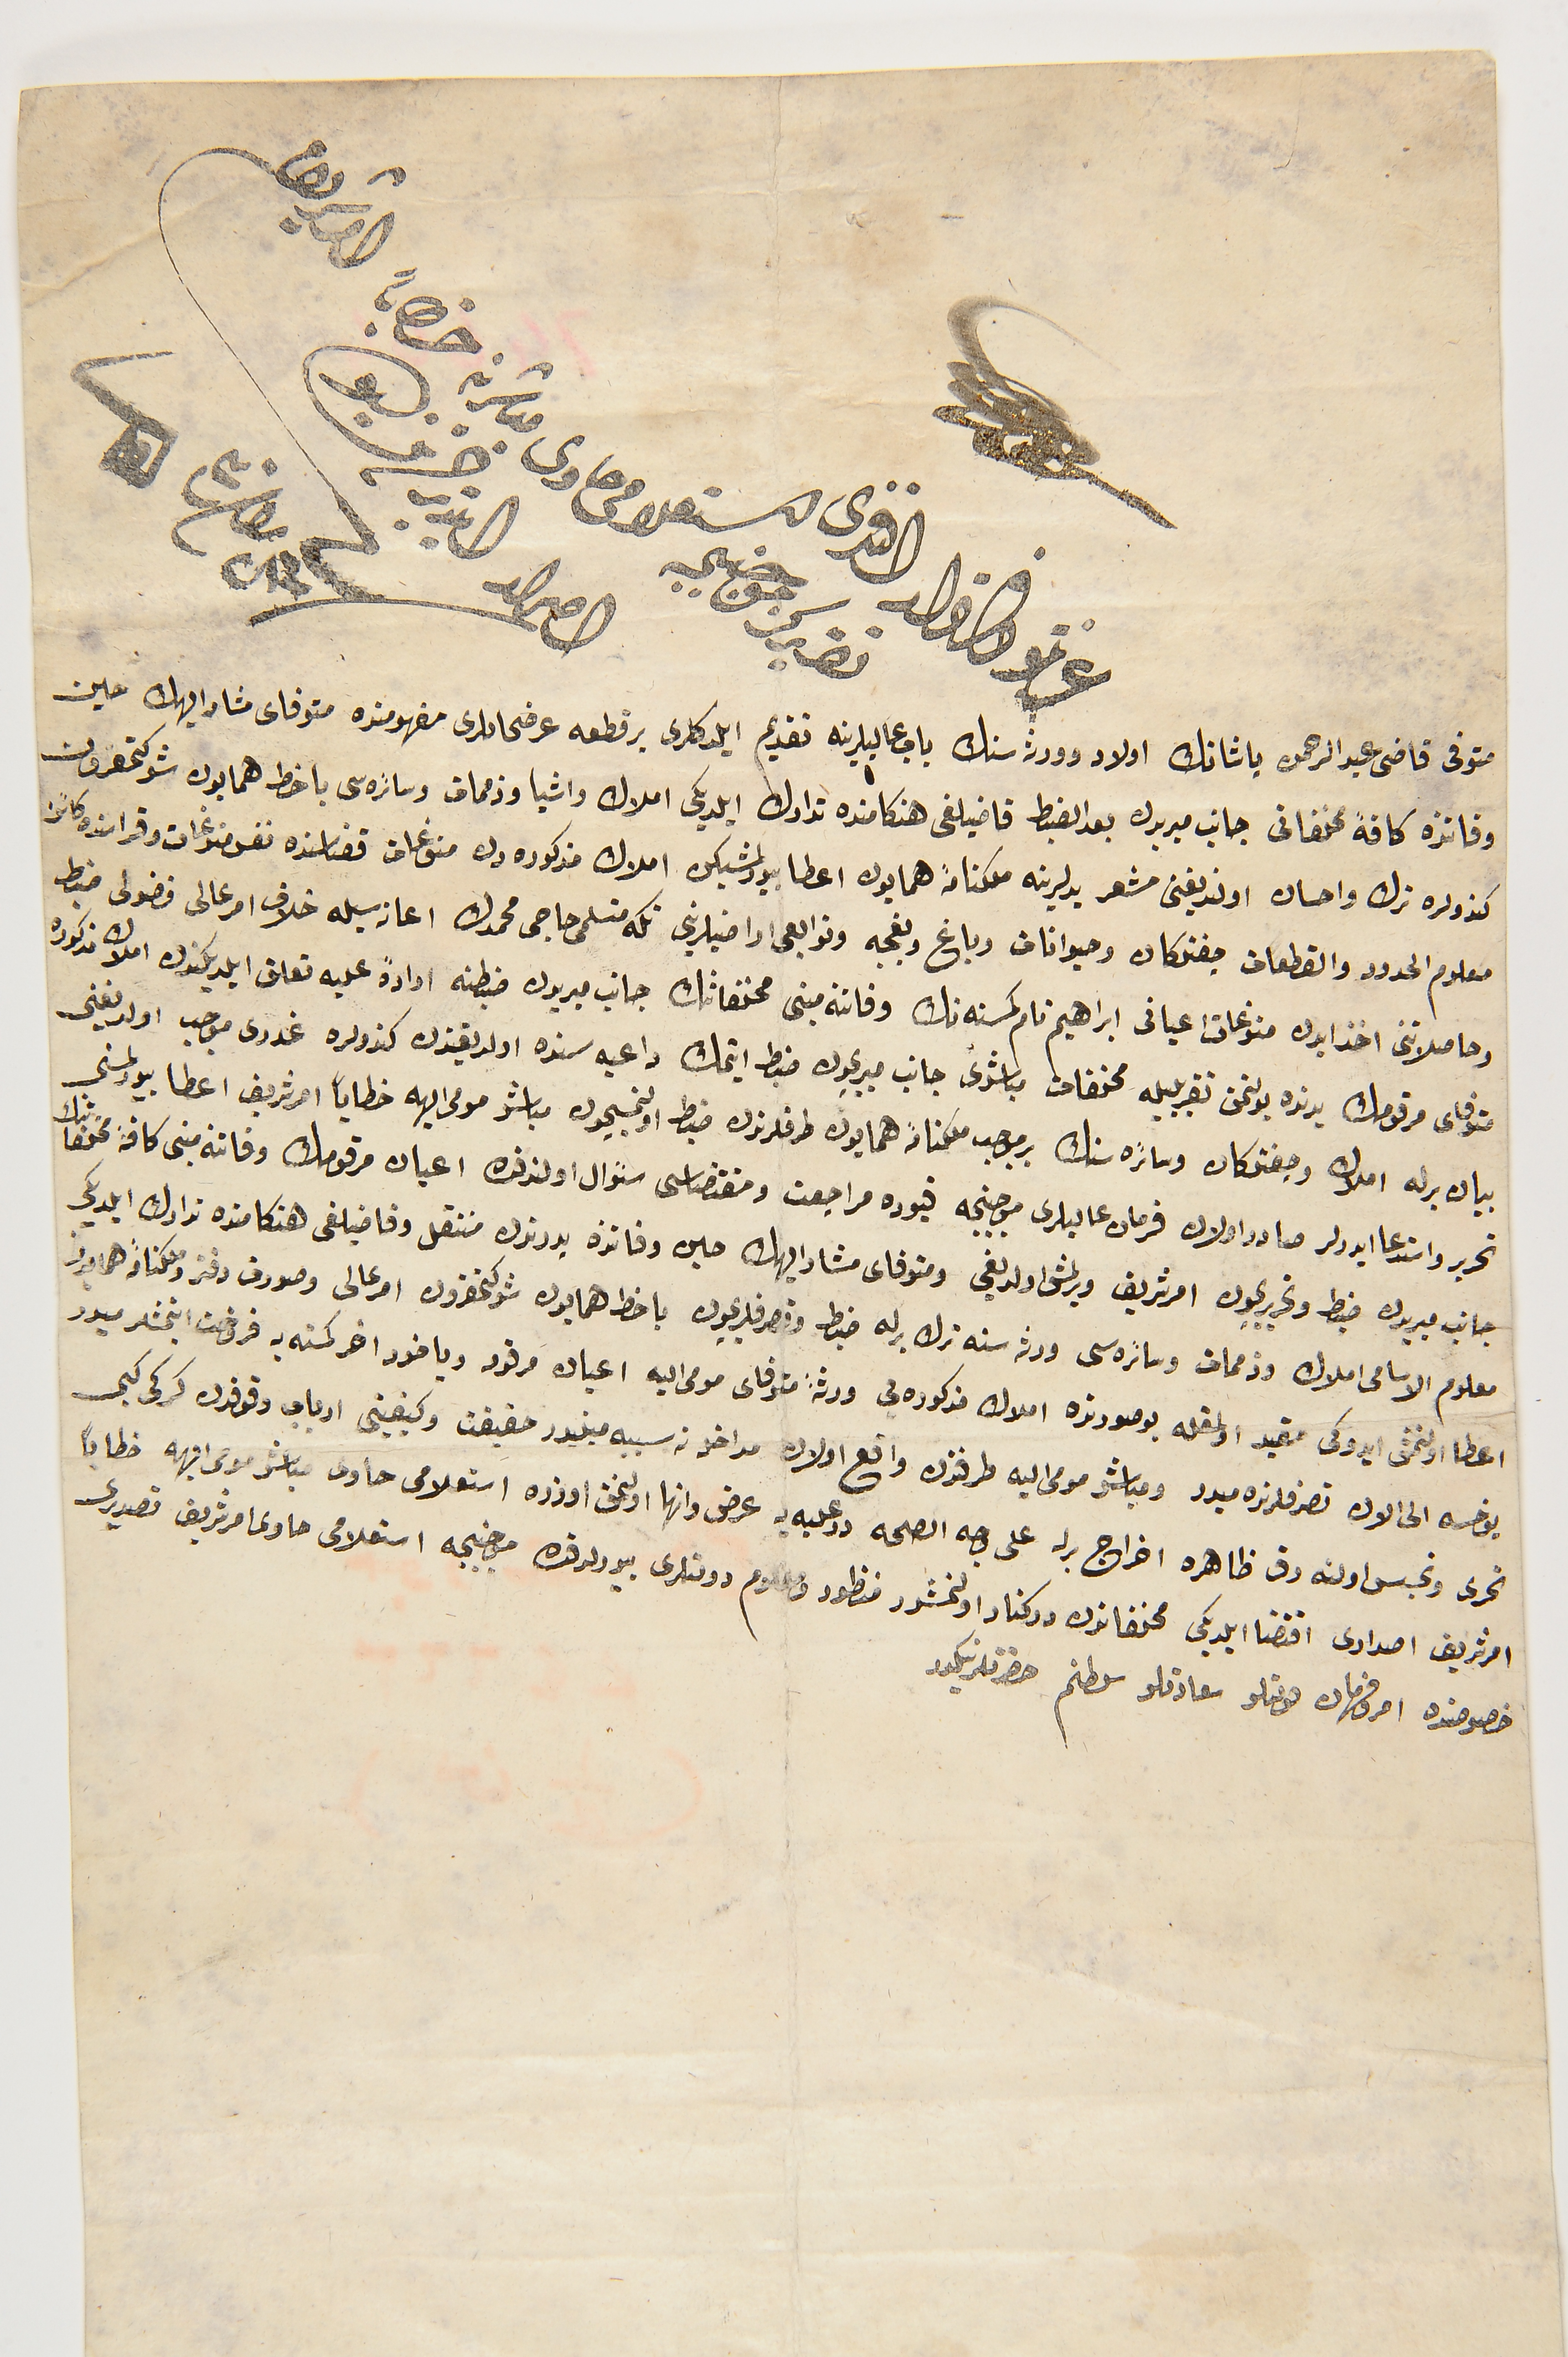 عزتلو دفتردار افندی استعلامی حاوی مباشرینه خطاباً امر شریف
تقریرکز موجبنجه اصدار
متوفی قاضی عبدالرحمن پاشانك اولاد وورثه سنك باب عالیلرینه تقدیم ایلدكلری بر قطعه عرضحاللری مفهومنده متوفای مشار الیهك حین
وفاتنده كافهٔ مخلفاتی جانب میریدن بعد الضبط قاضیلغی هنكامنده تدارك ایلدیكی املاك واشیا وذممات وسائره سی با خط همایون شوكتمقرون
كندولره ترك واحسان اولندیغنی مشعر یدلرینه ملكنامهٔ همایون اعطا بیورلمشیكن املاك مذكوره دن منوغات قضاسنده نفس منوغات وقراسنده كائن
معلوم الحدود والقطعات چفتلكان وحیوانات وباغ وبغچه وتوابعی اراضیلرینی تكه متسلمی حاجی محمدك اعانه سیله خلاف امر عالی فضولی ضبط
وحاصلاتنی اخذ ایدن منوغات اعیانی ابراهیم نام كمسنه نك وفاتنه مبنی مخلفاتنك جانب میریدن ضبطنه ارادهٔ علیه تعلق ایلدیكندن املاك مذكوره
متوفای مرقومك یدنده بولنمق تقریبیله مخلفات مباشری جانب میریچون ضبط ایتمك داعیه سنده اولدیغندن كندولره غدری موجب اولدیغنی
بیان برله املاك وچفتلكان وسائره سنك بر موجب ملكنامهٔ همایون طرفلرندن ضبط اولنمسیچون مباشر مومی الیهه خطاباً امر شریف اعطا بیورلمسنی
تحریر واستدعا ایدرلر صادر اولان فرمان عالیلری موجبنجه قیوده مراجعت ومقتضاسی سؤال اولندقده اعیان مرقومك وفاتنه مبنی كافهٔ مخلفاتنك
جانب میریدن ضبط وتحریریچون امر شریف ویرلمش اولدیغی ومتوفای مشار الیهك حین وفاتنده پدرندن منتقل وقاضیلغی هنكامنده تدارك ایلدیكی
معلوم الاسامی املاك وذممات وسائره سی ورثه سنه ترك برله ضبط وتصرفلریچون با خط همایون شوكتمقرون امر عالی وصورت دفتر وملكنامهٔ همایون
اعطا اولنمش ایدوكی مقید اولمغله بو صورتده املاك مذكوره یی ورثهٔ متوفای مومی الیه اعیان مرقومه ویاخود اخر كمسنه یه فروخت ایتمشلرمیدر
یوخسه الی الان تصرفلرنده میدر ومباشر مومی الیه طرفندن واقع اولان مداخله نه سببه مبنیدر حقیقت وكیفیتی ارباب وقوفدن كركی كبی
تحری وتجسس اولنه رق ظاهره اخراج برله علی وجه الصحه در علیه یه عرض وانها اولنمق اوزره استعلامی حاوی مباشر مومی الیهه خطاباً
امر شریف اصداری اقتضا ایلدیكی مخلفاتدن دركنار اولنمشدر منظور ومعلوم دولتلری بیورلدقده موجبنجه استعلامی حاوی امر شریف تصدیری
خصوصنده امر وفرمان دولتلو سعادتلو سلطانم حضرتلرینكدر